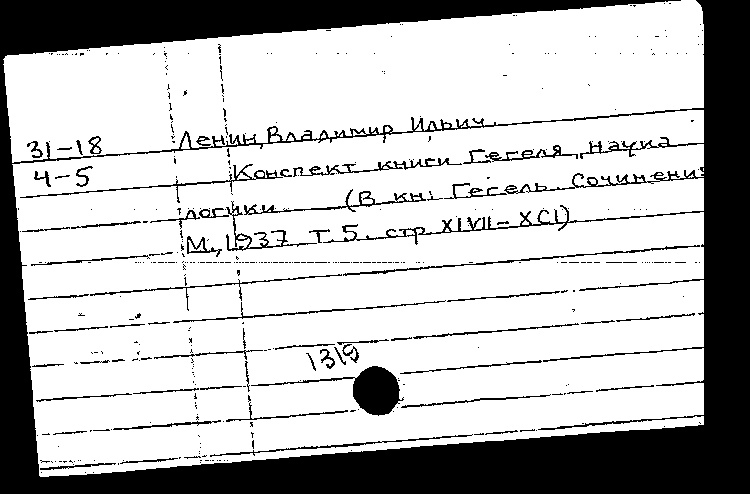 31-18 Ленин, Владимир Ильич.
4-5 Конспект книги Гегеля „Наука
логики. (В кн: Гегель. Сочинения
М., 1937 Т.5. стр XIVII-XCI)
1319